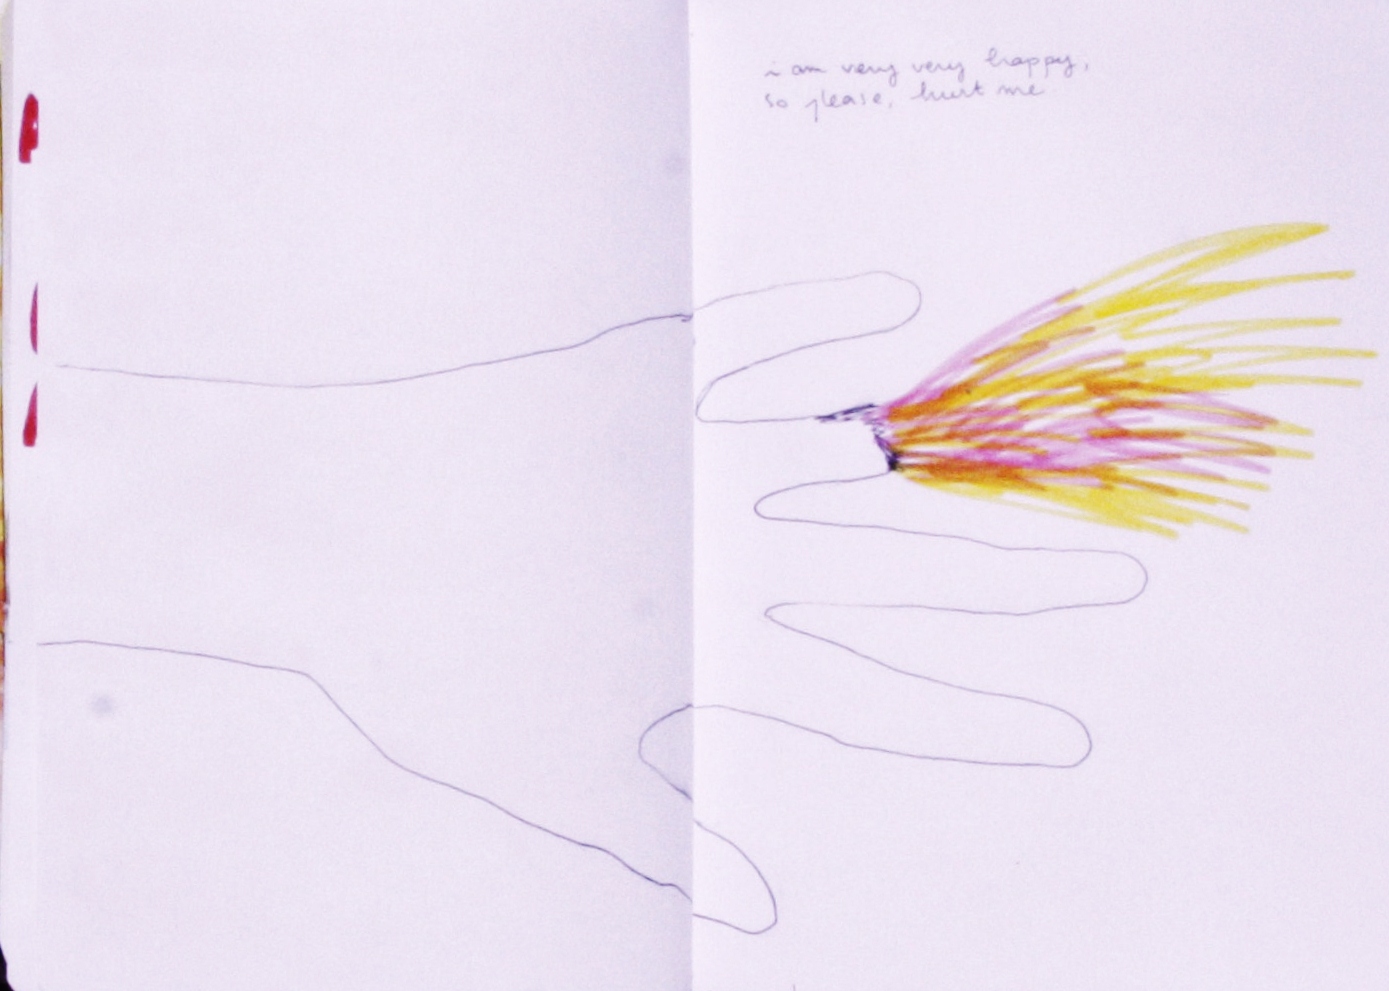 i am very very happy,
so please, hurt me